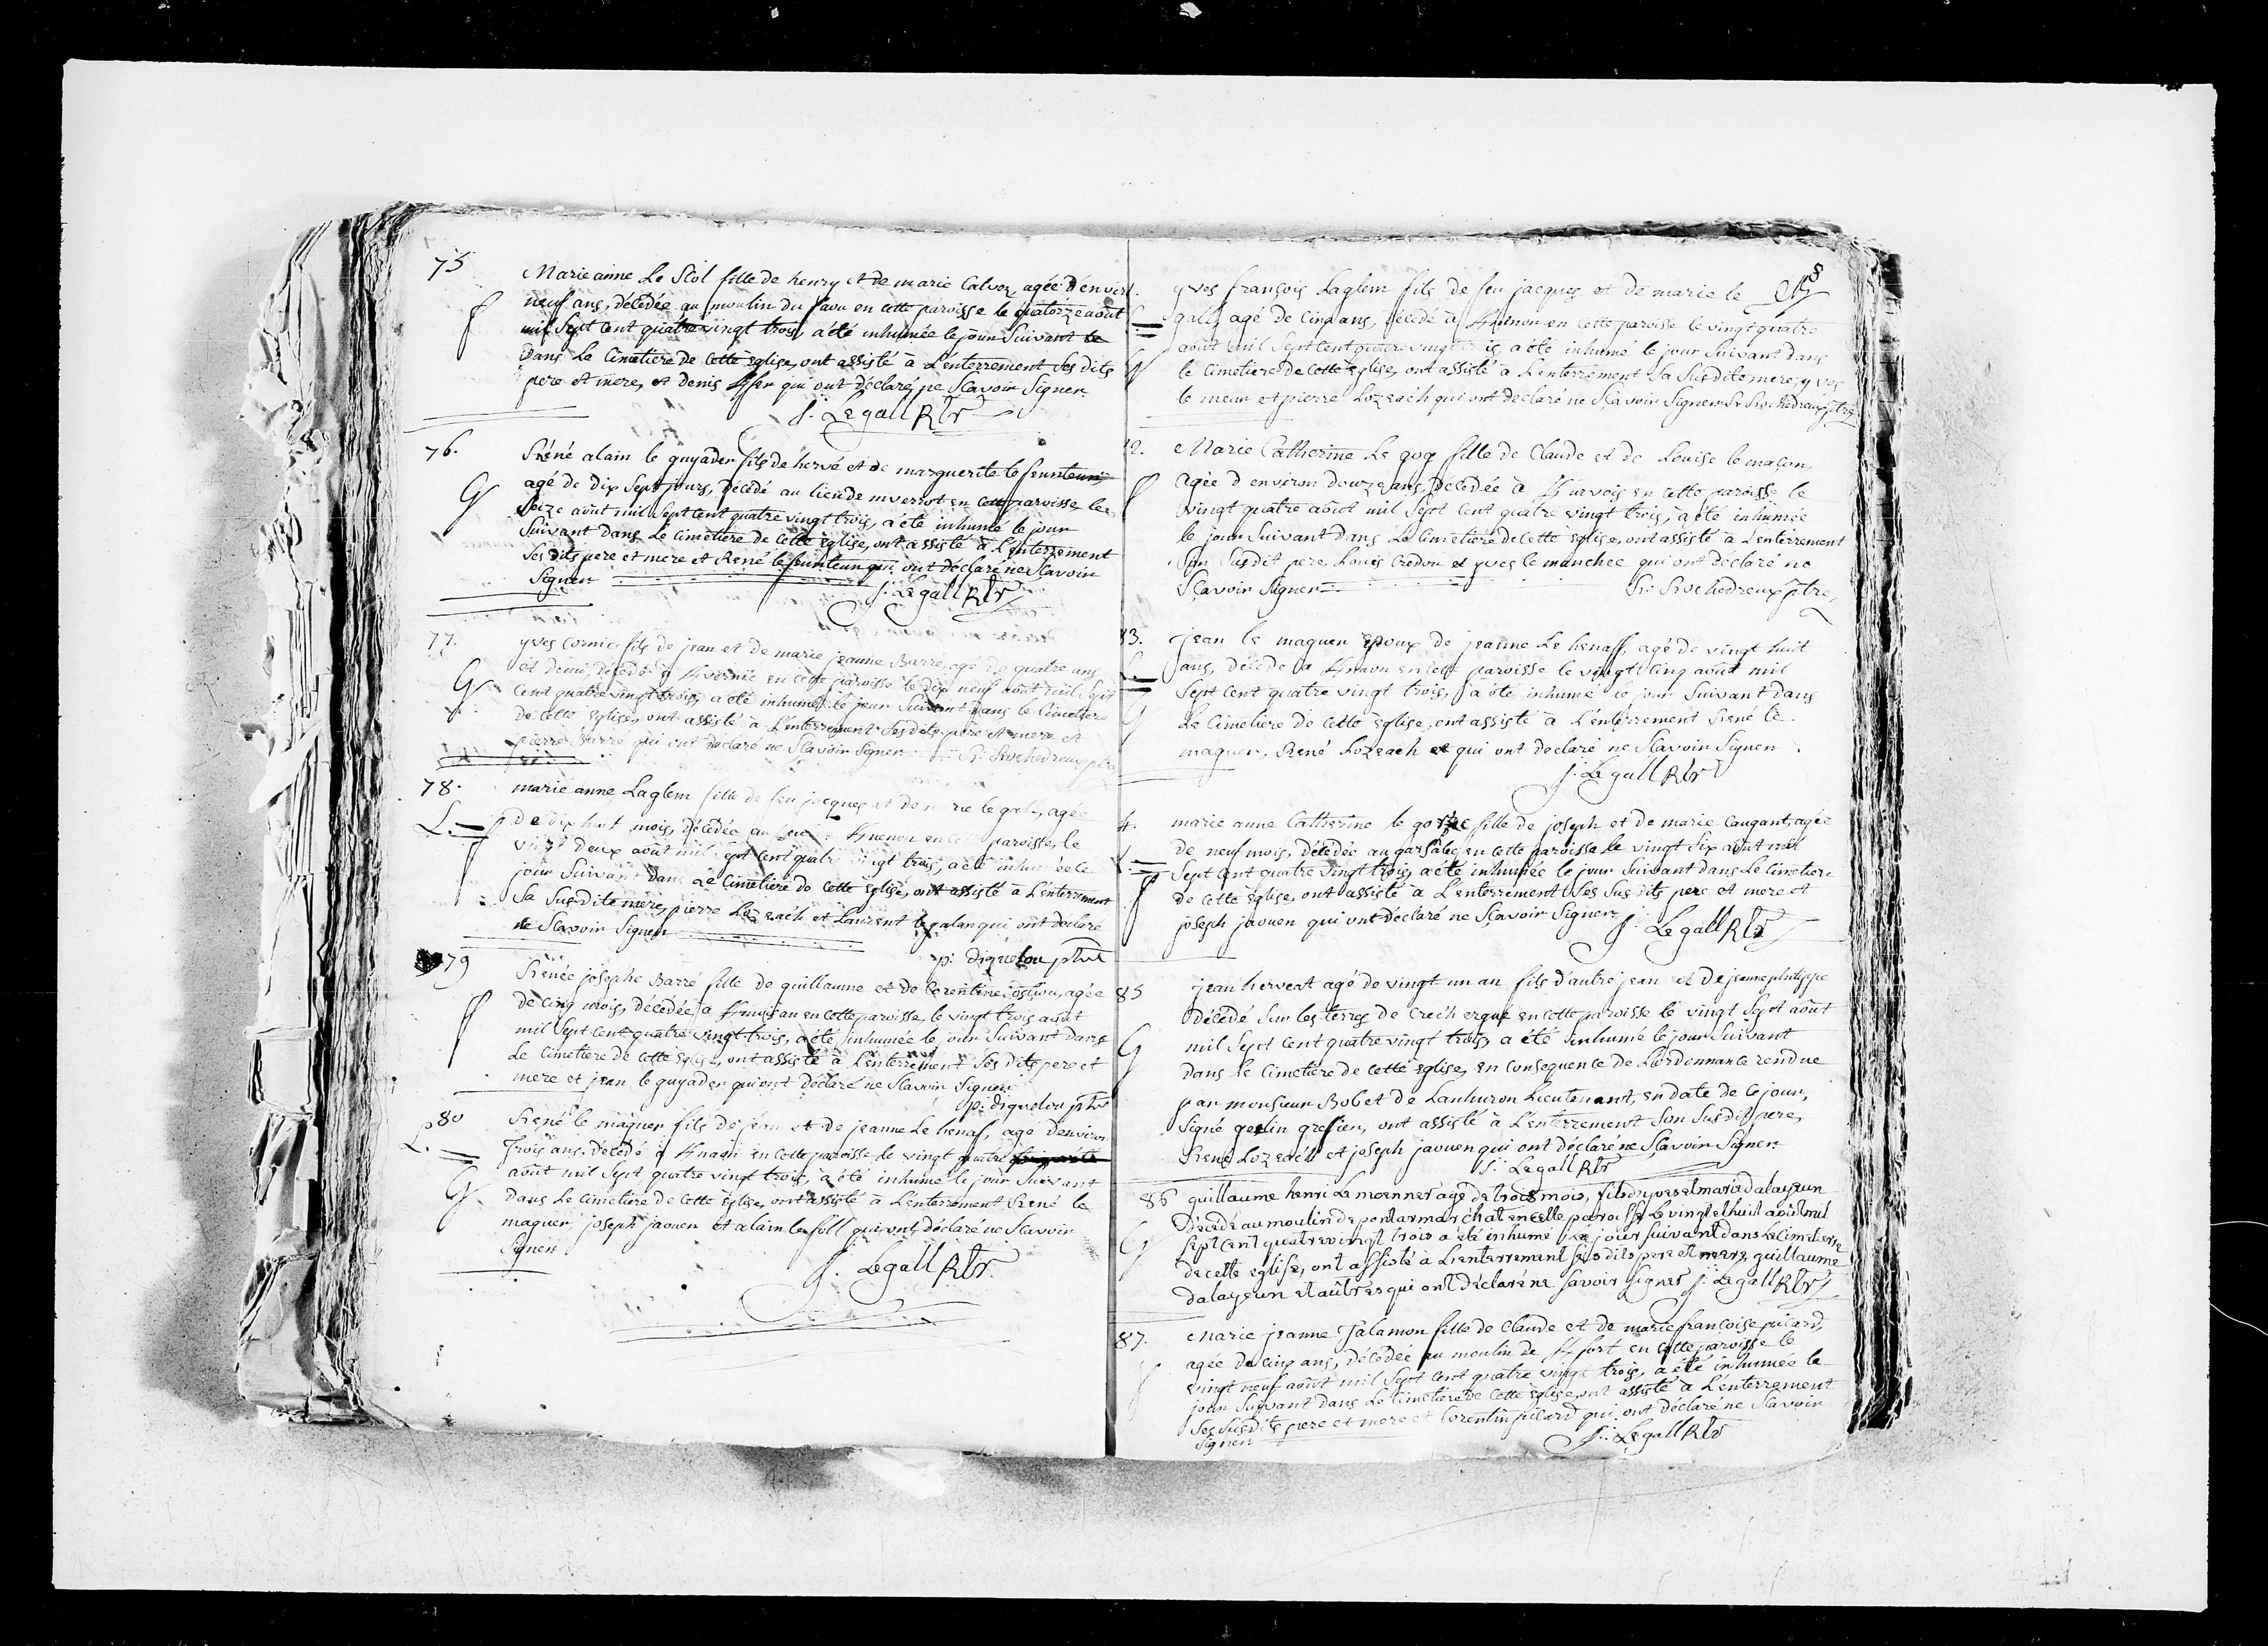 75
Marie anne Le Scol fille de henry et de marie Calvez agée d'envir.
neuf ans, décédée au moulin du favu en cette paroisse le quatorze août
mil Sept Cent quatrevingt trois, a été inhumée le jour Suivant le
Dans Le Cimetiere de Cette Eglise, ont assisté à L'enterrement Ses dits
pere et mere, et Denis qui ont déclaré ne Scavoir Signer
J. Le gall Rtr
76.
Réné alain le guyader fils de hervé et de marguerite le feunteun
G
agé de dix Sept jours, décédé au lieu de en Cette paroisse le
Seize août mil Sept Cent quatre vingt trois, a été inhumé le jour
Suivant dans Le Cimetiere de Cette Eglise, ont assisté à L'enterrement
Ses dits pere et mere et René le feunteun qui ont déclaré ne Scavoir
Signer
J. Le gall Rtr
77.
yves Cornic fils de jean et de marie jeanne Barré, agé de quatre ans
G
et demi, décédé à en cette paroisse le dix neuf août mil Sept
Cent quatre vingt trois, a été inhumé le jour Suivant dans le Cimetiere
de Cette Eglise, ont assisté à L'enterrement Ses dits pere et mere et
pierre Barré qui ont déclaré ne Scavoir Signer R: Rochedreux ptre
78.
marie anne Laglem fille de feu jacques et de marie le gall, agée
L.
De dix huit mois, décédée au en cette paroisse, le
vingt Deux août mil Sept Cent quatre vingt trois, a été inhumée le
jour Suivant dans Le Cimetiere de Cette Eglise, ont assisté à L'enterrement
Sa Susdite mere, pierre Lozeach et Laurent le galan qui ont déclaré
ne Scavoir Signer
p: diquelou
79
Renée josephe Barré fille de guillaume et de Corentine, agée
de cinq mois, décédée à en cette paroisse, le vingt trois août
mil Sept Cent quatre vingt trois, a été inhumée le jour Suivant dans
Le Cimetiere de Cette Eglise, ont assisté à L'enterrement Ses dits pere et
mere et jean le guyader qui ont déclaré ne Scavoir Signer
p: diquelou
80
René le maguer fils de jean et de jeanne Le henaf, agé d'environ
L.
Trois ans, décédé à en cette paroisse le vingt quatre
août mil Sept quatre vingt trois, a été inhumé le jour Suivant
G
Dans Le Cimetiere de Cette Eglise, ont assisté à L'enterrement René le
maguer, joseph jaouen et alain le foll qui ont déclaré ne Scavoir
Signer
J. Le gall Rtr
8
yves françois Laglem fils de feu jacques et de marie le
gall, agé de Cinq ans, décédé à en cette paroisse le vingt quatre
août mil Sept Cent quatre vingt is, a été inhumé le jour Suivant dans
G
le Cimetiere de Cette Eglise, ont assisté à L'enterrement Sa Susdite mere, yves
le meur et pierre Lozeach qui ont déclaré ne Scavoir Signer R: Rochedreux ptre
2.
Marie Catherine Le gog fille de Claude et de Louise le maçon,
agée d'environ douze ans, décédée à en Cette paroisse le
vingt quatre août mil Sept Cent quatre vingt trois, a été inhumée
le jour Suivant dans Le Cimetiere de Cette Eglise, ont assisté à L'enterrement
Son Susdit pere, Louis Credou et yves le manchec qui ont déclaré ne
Scavoir Signer
R: Rochedreux ptre,
83.
jean le maguer Epoux de jeanne Le henaff, agé de vingt huit
L.
ans, décédé à en cette paroisse le vingt Cinq août mil
Sept Cent quatre vingt trois, a été inhumé le jour Suivant dans
G
Le Cimetiere de Cette Eglise, ont assisté à L'enterrement René le
maguer, René Lozeach et qui ont déclaré ne Scavoir Signer
J. Le gall Rtr
4.
marie anne Catherine le fille de joseph et de marie Caugant, agée
de neuf mois, décédée au garsalec en cette paroisse le vingt Six août mil
Sept Cent quatre vingt trois, a été inhumée le jour Suivant dans Le Cimetiere
de Cette Eglise, ont assisté à L'enterrement Ses Susdits pere et mere et
joseph jaouen qui ont déclaré ne Scavoir Signer
J. Le gall Rtr
85
jean hervert agé de vingt un an fils d'autre jean et De jeanne philippe
décédé Sur les terres de Crec'h ergué en cette paroisse le vingt Sept août
G
mil Sept Cent quatre vingt trois, a été inhumé le jour Suivant
dans Le Cimetiere de Cette Eglise, en consequence de L'ordonnance rendue
par monsieur Bobet de Lanhuron Lieutenant, en date de Ce jour,
Signé gefflin ont assisté à L'enterrement Son Susdit pere,
René Lozeach et joseph jaouen qui ont déclaré ne Scavoir Signer
J. Le gall Rtr
86
guillaume henri Le moenner agé de trois mois, fils d'yves et marie Dalayeun
Décédé au moulin de pont ar marchat en cette paroisse Le vingt et huit août mil
G
Sept Cent quatre vingt trois a été inhumé le jour suivant dans Le Cimetierre
de cette eglise, ont assisté à L'enterrement ses dits pere et mere, guillaume
dalayeun et autres qui ont déclaré ne savoir signer J. Le gall Rtr
87.
Marie jeanne Salamon fille de Claude et de marie françoise picard,
agée de cinq ans, décédée au moulin de en cette paroisse le
vingt neuf août mil Sept Cent quatre vingt trois, a été inhumée le
jour Suivant dans Le Cimetiere de Cette Eglise, ont assisté à L'enterrement
Ses Susdits pere et mere et Corentin picard qui ont déclaré ne Scavoir
Signer
J. Le gall Rtr